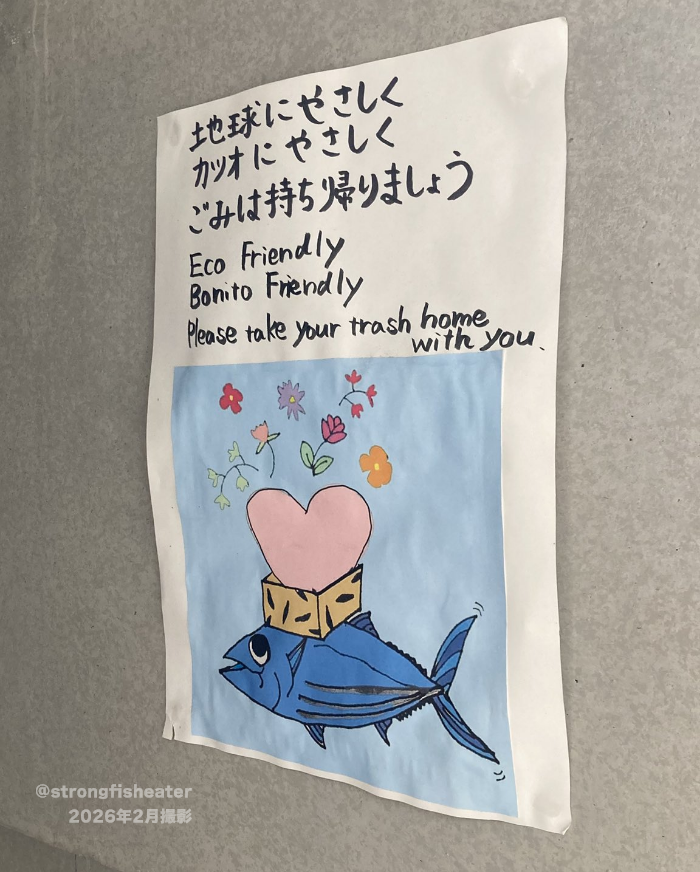 地球にやさしく
カツオにやさしく
ごみは持ち帰りましょう
Eco Friendly
Bonito Friendly
Please take your trash home
with you.
@strongfisheater
2026年2月撮影